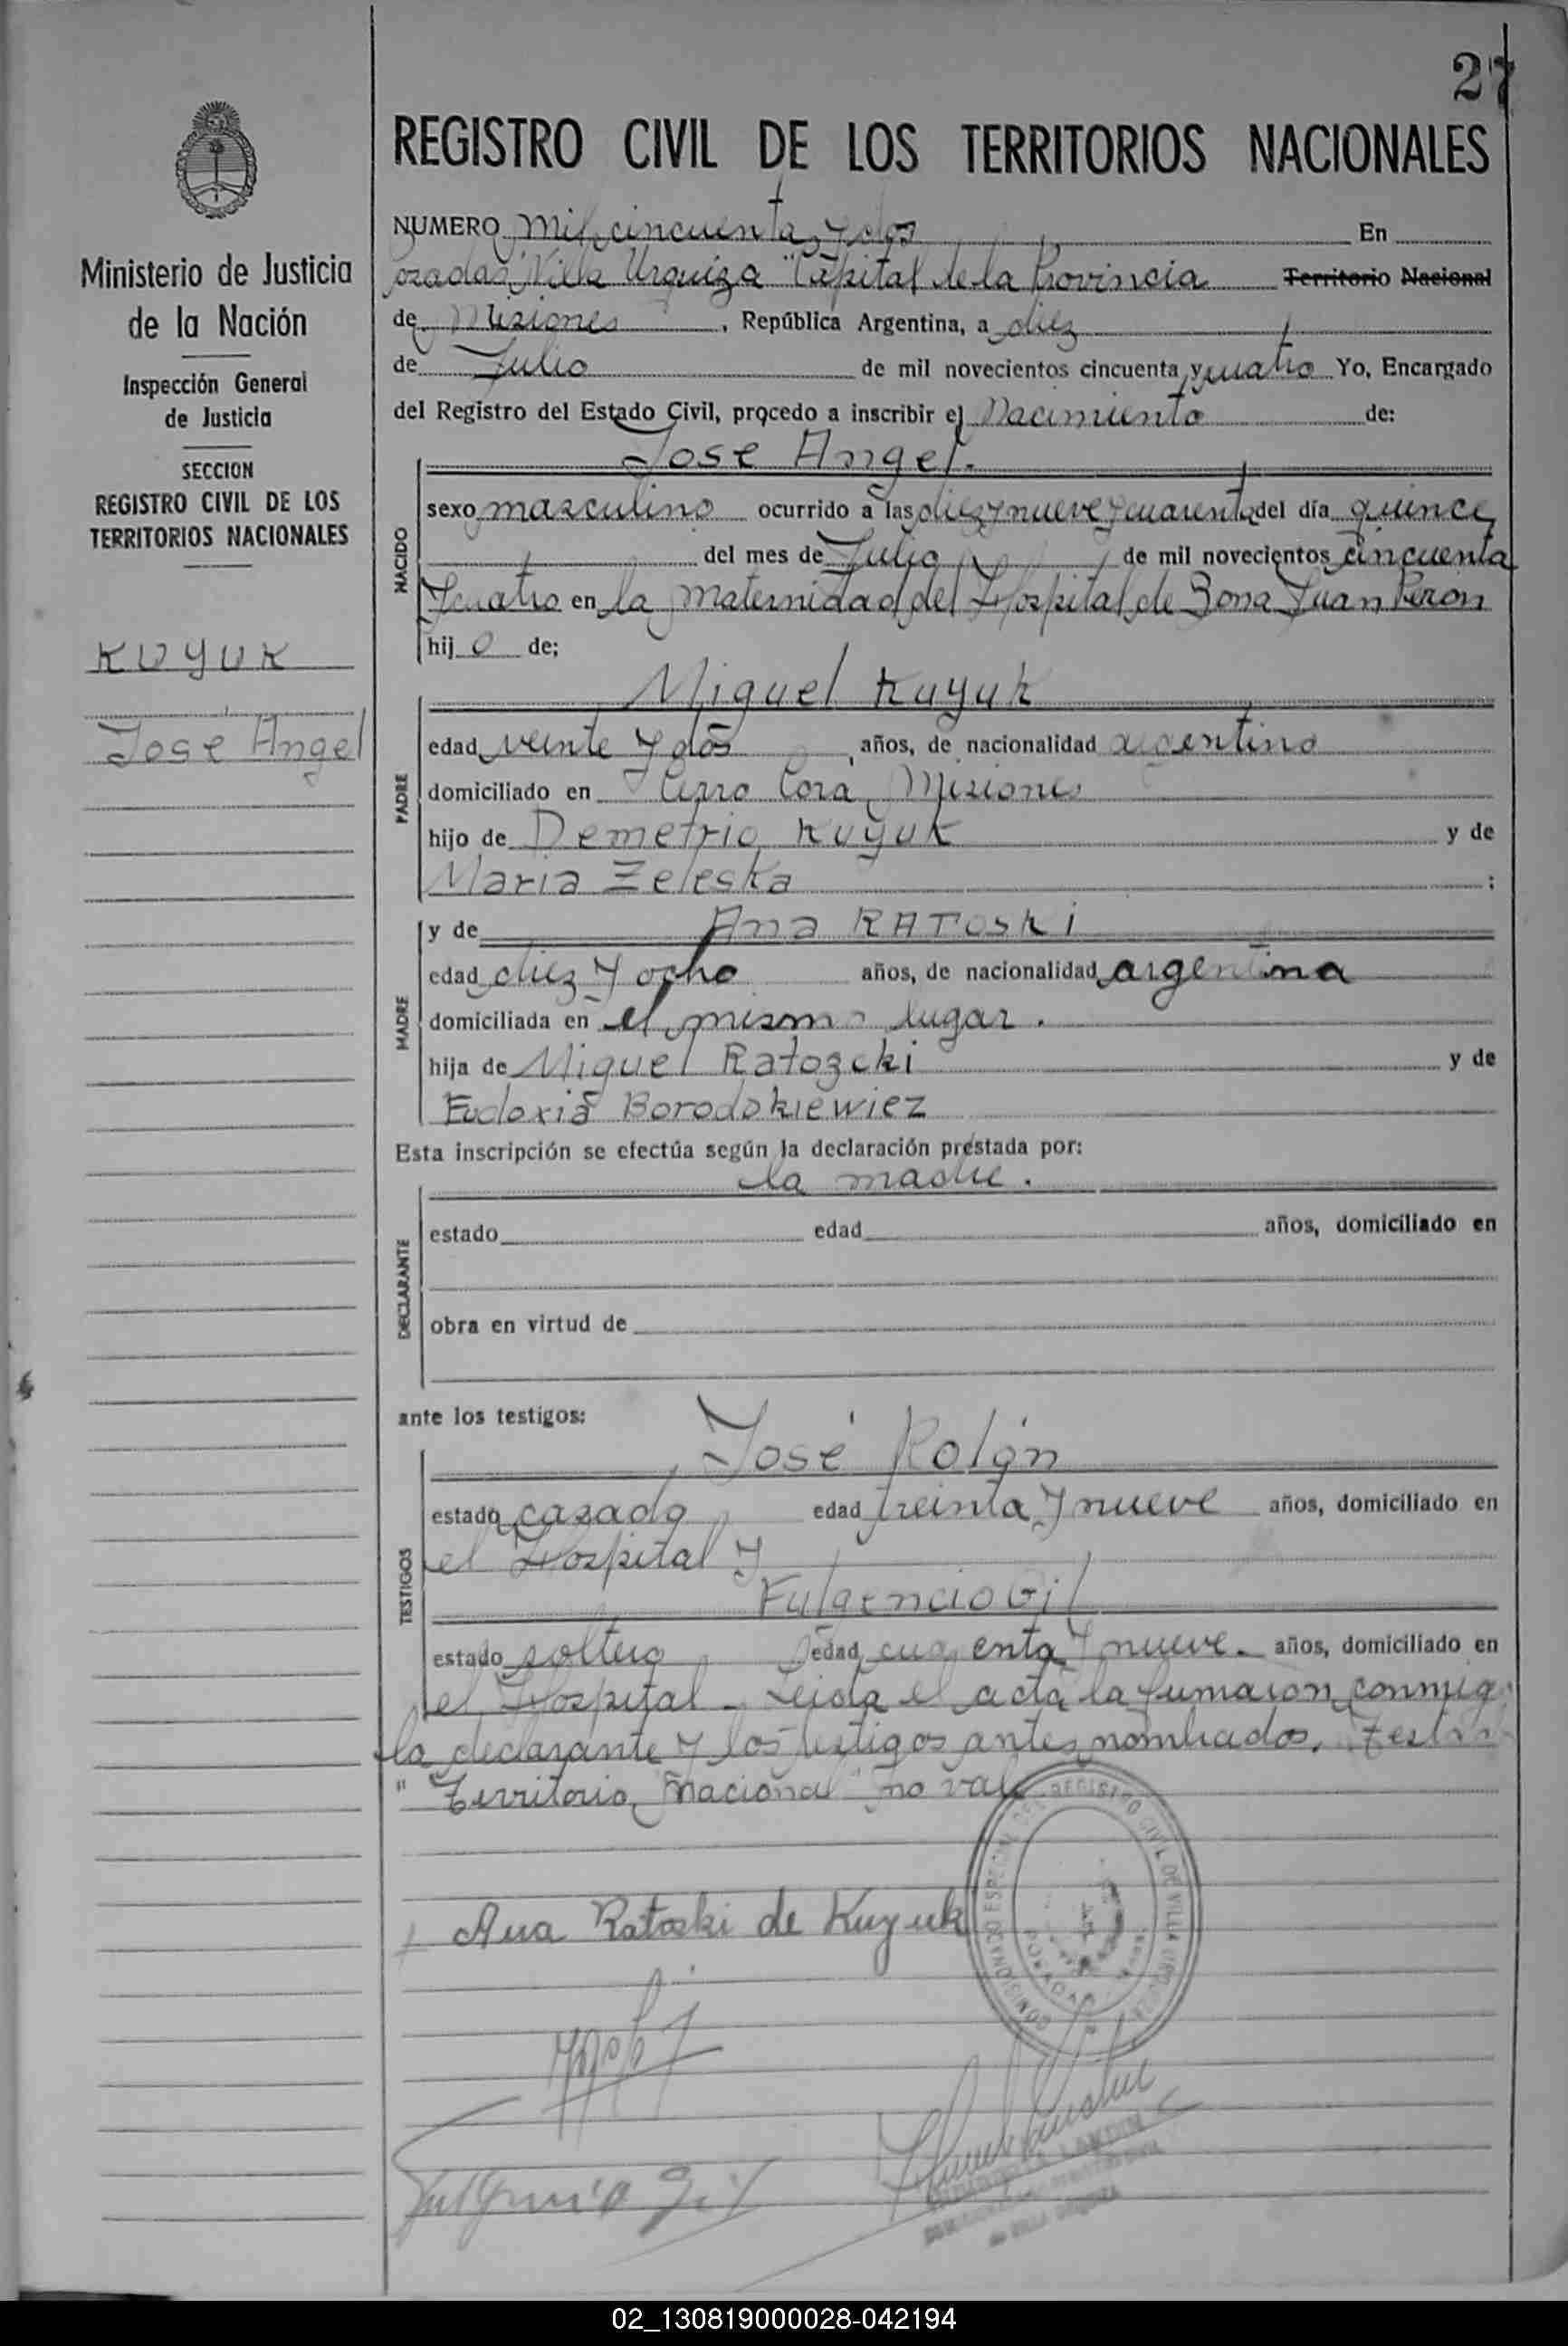 27
REGISTRO CIVIL DE LOS TERRITORIOS NACIONALES
Ministerio de Justicia
de la Nación
Inspección General
de Justicia
SECCION
REGISTRO CIVIL DE LOS
TERRITORIOS NACIONALES
KUYUK
José Angel
NUMERO mil cincuenta y dos En
Posadas "Villa Urquiza" Capital de la Provincia Territorio Nacional
de Misiones, República Argentina, a diez
de Julio de mil novecientos cincuenta y cuatro Yo, Encargado
del Registro del Estado Civil, procedo a inscribir el Nacimiento de:
NACIDO
José Angel.
sexo masculino ocurrido a las diez y nueve y cuarenta del día quince
del mes de Julio de mil novecientos cincuenta
y cuatro en la maternidad del Hospital de Zona Juan Perón
hijo de;
PADRE
Miguel Kuyuk
edad veinte y dos años, de nacionalidad argentino
domiciliado en Cerro Corá, Misiones
hijo de Demetrio Kuyuk y de
Maria Zeleska ;
MADRE
y de Ana RATOSKI
edad diez y ocho años, de nacionalidad argentina
domiciliada en el mismo lugar.
hija de Miguel Ratozcki y de
Eudoxia Borodokiewiez
Esta inscripción se efectúa según la declaración prestada por:
DECLARANTE
la madre.
estado edad años, domiciliado en
obra en virtud de
ante los testigos:
TESTIGOS
José Rolón
estado casado edad treinta y nueve años, domiciliado en
el Hospital y
Fulgencio Gil
estado soltero edad cuarenta y nueve. años, domiciliado en
el Hospital - Leida el acta la firmaron conmigo
la declarante y los testigos antes nombrados.
"Territorio Nacional" no vale
COMISIONADO ESPECIAL DEL REGISTRO CIVIL DE VILLA URQUIZA
POSADAS
Ana Ratoski de Kuyuk
Fulgencio Gil
02_130819000028-042194